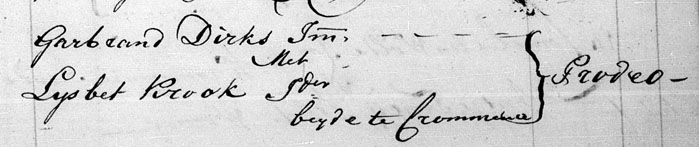 Garbrand Dirks Jm: - - - -
Met
Lijsbet Krook Jder
beyde te Crommenie
Prodeo -